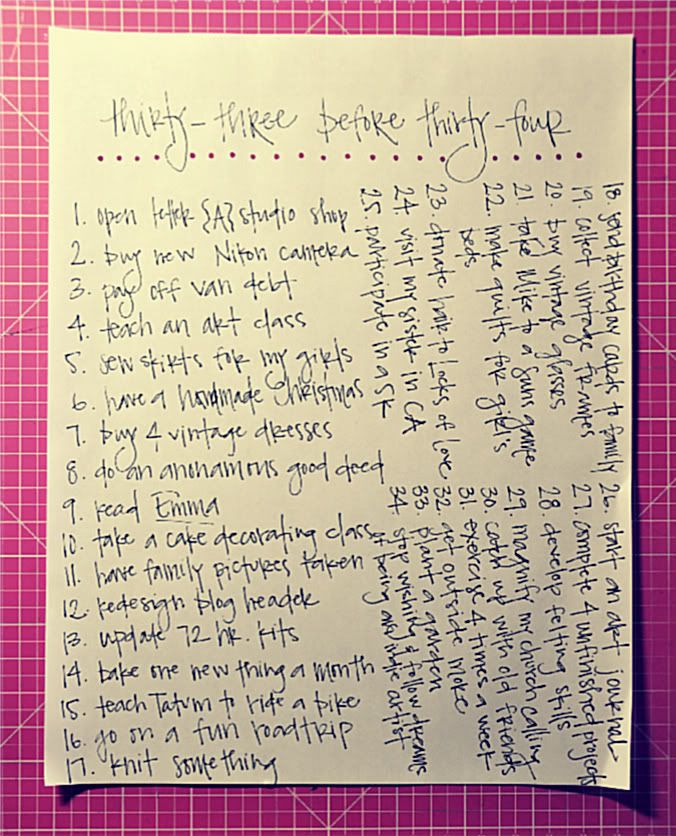 thirty-three before thirty-four
1. open letter {A} studio shop
2. buy new Nikon camera
3. pay off van debt
4. teach an art class
5. sew skirts for my girls
6. have a handmade Christmas
7. buy 4 vintage dresses
8. do an anonamous good deed
9. read Emma
10. take a cake decorating class
11. have family pictures taken
12. redesign blog header
13. update 72 hr. kits
14. bake one new thing a month
15. teach Tatum to ride a bike
16. go on a fun roadtrip
17. knit something
18. send birthday cards to family
19. collect vintage frames
20. buy vintage glasses
21. take Mike to a Suns game
22. make quilts for girl's
beds
23. donate hair to Locks of love
24. visit my sister in CA
25. participate in a 5K
26. start an art journal
27. complete 4 unfinished projects
28. develop felting skills
29. magnify my church calling
30. catch up with old friends
31. exercise 4 times a week
32. get outside more
33. plant a garden
34. stop wishing & follow dreams
of being an indie artist